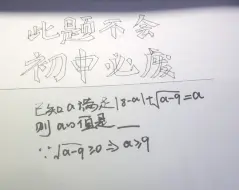 此题不会
初中必废
已知a满足|8-a|+√a-9=a
则a的值是__
∵√a-9≥0⇒a≥9